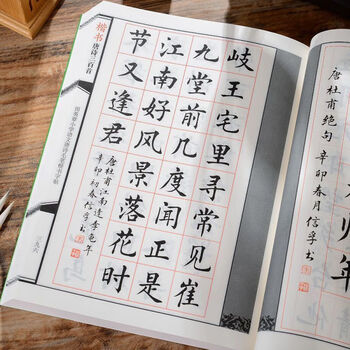 唐杜甫绝句 辛卯春月信孚书
岐王宅里寻常见崔
九堂前几度闻正是
江南好风景落花时
节又逢君
唐杜甫江南逢李龟年
辛卯初春信孚书
楷书 唐诗三百首